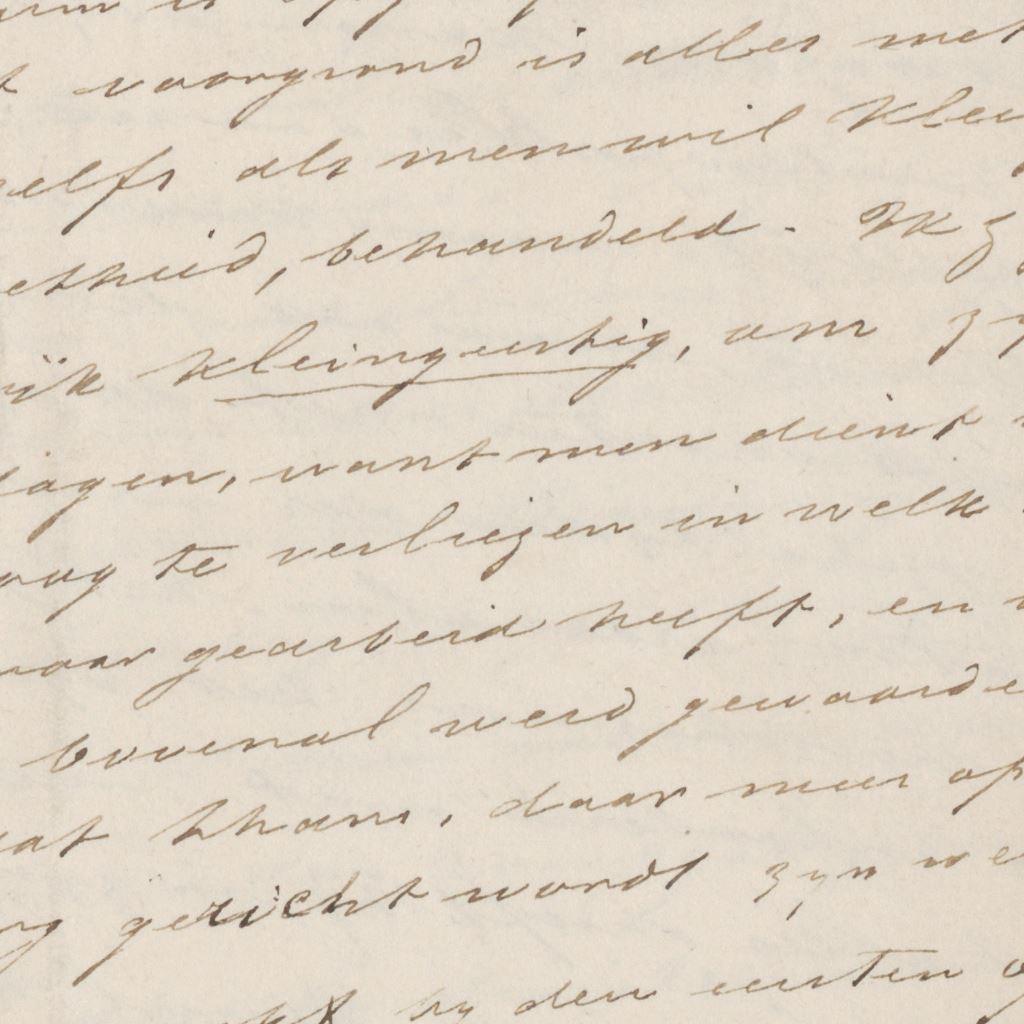 voorgrond is alles met
elfs als men wil klei
etheid, behandeld. Ik z
ijk kleingeestig, om zy
agen, want men dient
oog te verliezen in welk
waar gearbeid heeft, en
bovenal werd gewaarde
at thans, daar meer op
ng gericht wordt zyn we
by den eersten o